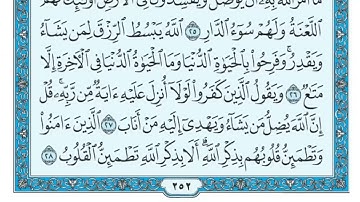 مَآ أَمَرَ ٱللَّهُ بِهِۦٓ أَن يُوصَلَ وَيُفْسِدُونَ فِى ٱلْأَرْضِ أُو۟لَـٰٓئِكَ لَهُمُ
ٱللَّعْنَةُ وَلَهُمْ سُوٓءُ ٱلدَّارِ ٢٥ ٱللَّهُ يَبْسُطُ ٱلرِّزْقَ لِمَن يَشَآءُ
وَيَقْدِرُ ۚ وَفَرِحُوا۟ بِٱلْحَيَوٰةِ ٱلدُّنْيَا وَمَا ٱلْحَيَوٰةُ ٱلدُّنْيَا فِى ٱلْـَٔاخِرَةِ إِلَّا
مَتَـٰعٌ ٢٦ وَيَقُولُ ٱلَّذِينَ كَفَرُوا۟ لَوْلَآ أُنزِلَ عَلَيْهِ ءَايَةٌ مِّن رَّبِّهِۦ ۗ قُلْ
إِنَّ ٱللَّهَ يُضِلُّ مَن يَشَآءُ وَيَهْدِىٓ إِلَيْهِ مَنْ أَنَابَ ٢٧ ٱلَّذِينَ ءَامَنُوا۟
وَتَطْمَئِنُّ قُلُوبُهُم بِذِكْرِ ٱللَّهِ ۗ أَلَا بِذِكْرِ ٱللَّهِ تَطْمَئِنُّ ٱلْقُلُوبُ ٢٨
٢٥٢